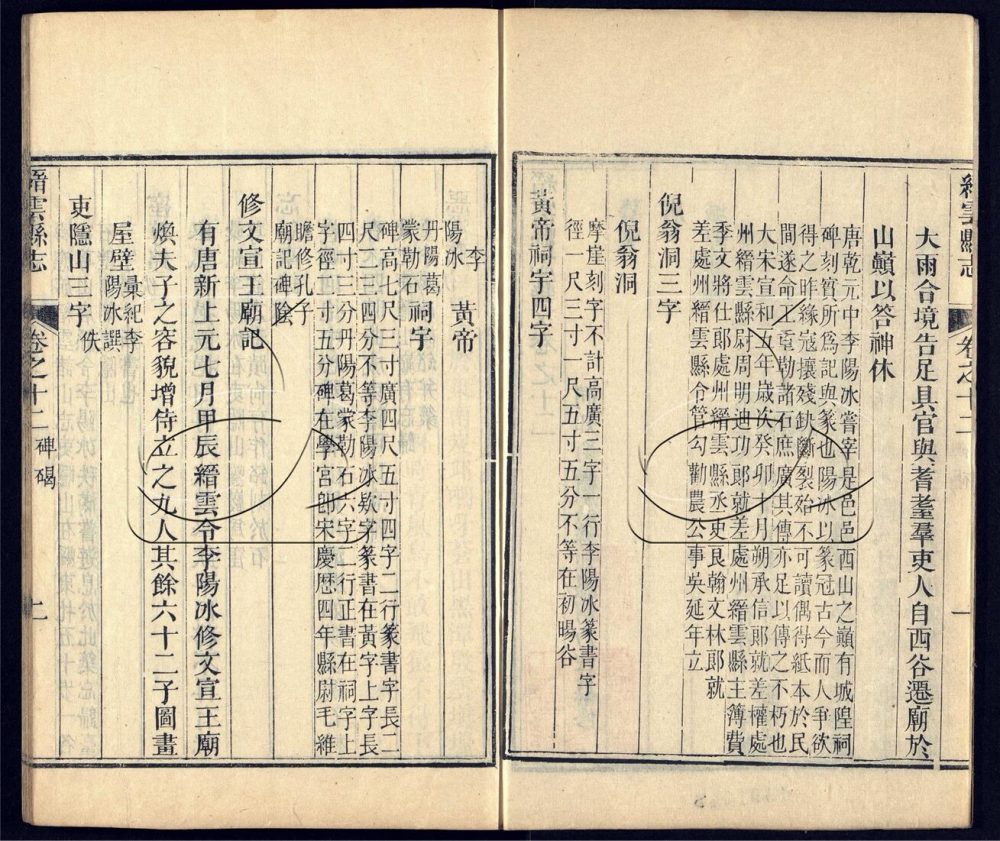 縉雲縣志
卷之十二
一
大雨合境告足具官與耆耋羣吏人自西谷遷廟於
山巔以答神休
唐乾元中李陽冰嘗宰是邑邑西山之巔有城隍祠
碑刻質所為記與篆也陽冰以篆冠古今而人爭欲
得之昨緣寇攘殘缺斷裂殆不可讀偶得紙本於民
間遂命工重勒諸石庶廣其傳亦足以傳之不朽也
大宋宣和五年歲次癸卯十月朔承信郎就差權處
州縉雲縣尉周明迪功郎就差處州縉雲縣主簿費
季文將仕郎處州縉雲縣丞吏良翰文林郎就
差處州縉雲縣令管勾勸農公事吳延年立
倪翁洞三字
倪翁洞
摩崖刻字不計高廣三字一行李陽冰篆書字
徑一尺三寸一尺五寸五分不等在初暘谷
黃帝祠字四字
李
陽冰
黃帝
丹陽葛
蒙勒石
祠字
碑高七尺三寸廣四尺五寸四字二行篆書字長二
尺二三四分不等李陽冰欵字篆書在黃字上字長
四寸三分丹陽葛蒙勒石六字一行正書在祠字上
字徑二寸五分碑在學宮卽宋慶歷四年縣尉毛維
瞻修孔子
廟記碑陰
修文宣王廟記
有唐新上元七月甲辰縉雲令李陽冰修文宣王廟
煥夫子之容貌增侍立之九人其餘六十二子圖畫
屋壁
彙紀李
陽冰譔
吏隱山三字
佚
縉雲縣志
卷之十二
碑碣
二